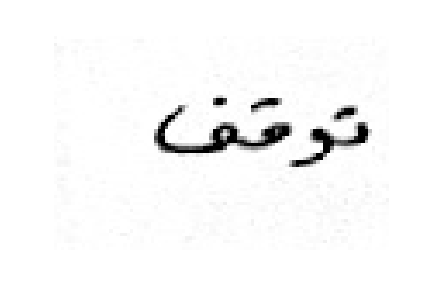 توقف